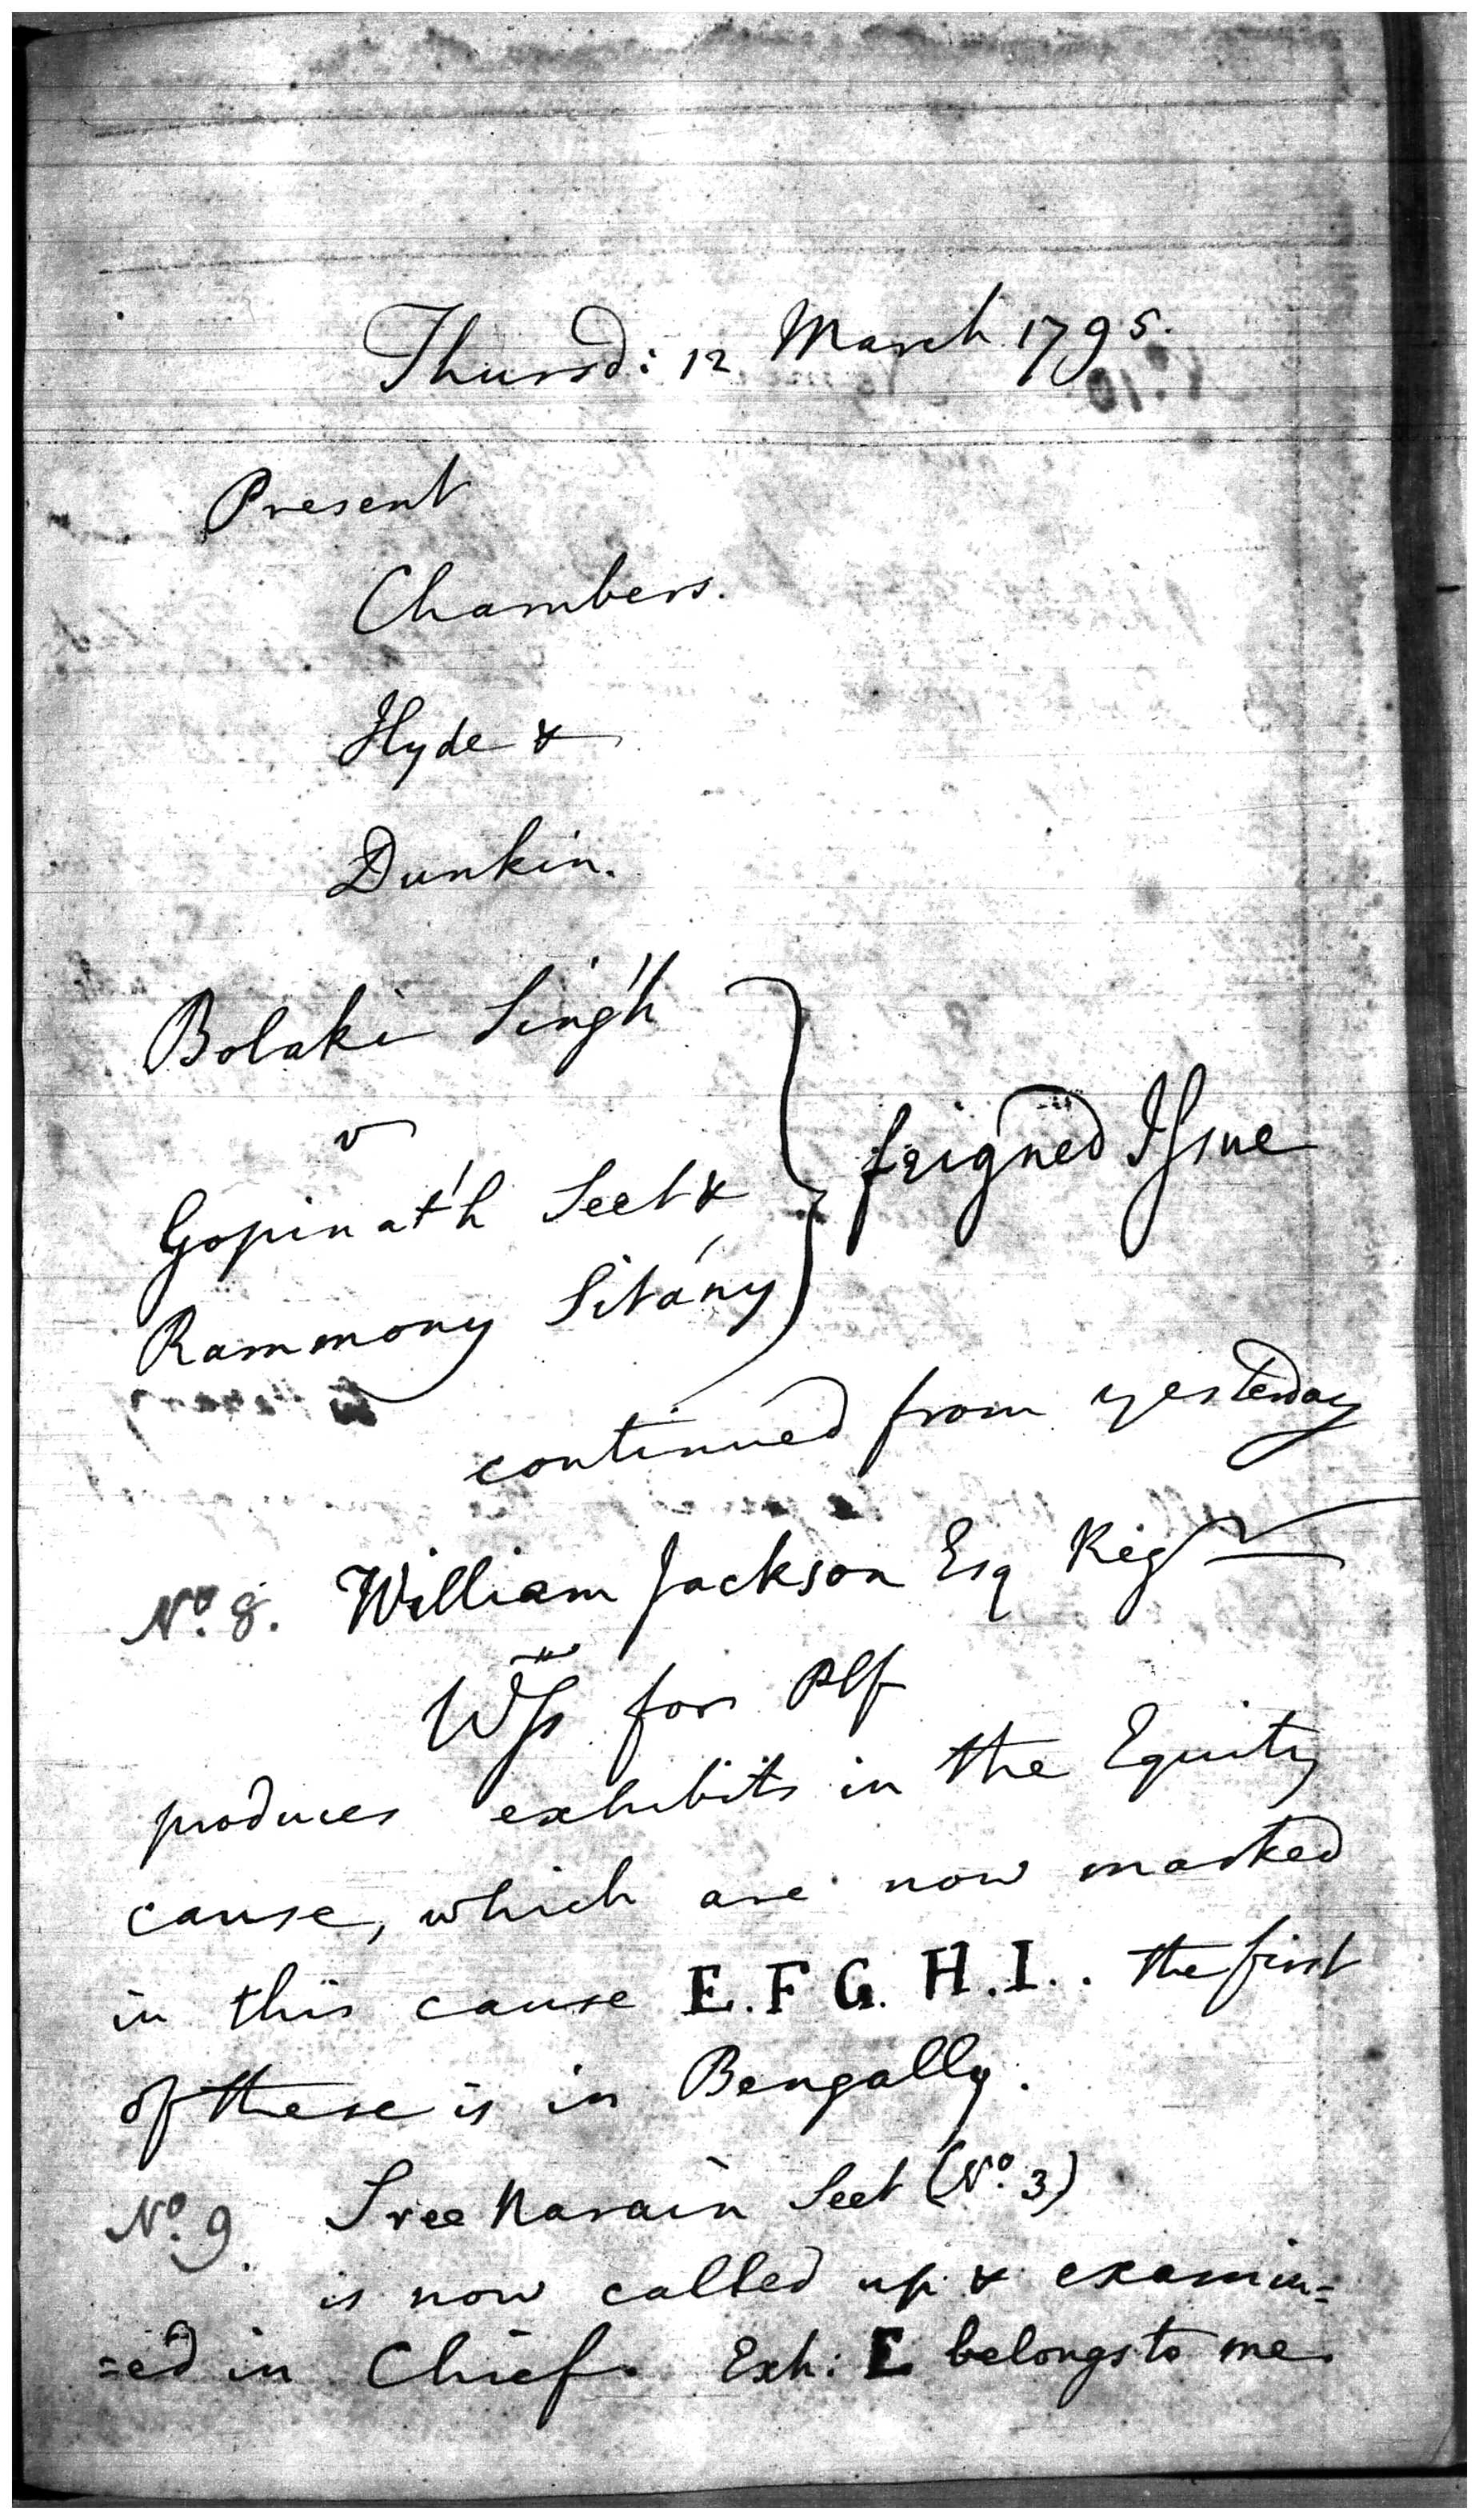 Thursd: 12 March 1795.
Present
Chambers.
Hyde &
Dunkin.
Bolaki Sing'h
v
Gopinat'h Seet &
Rammony Sitány
feigned Issue
continued from yesterday
No. 8. William Jackson Esq Regr
Wss for Plf
produces exhibits in the Equity
cause, which are now marked
in this cause E. F G. H. I.. the first
of these is in Bengally.
No. 9 Sree Narain Seet (No. 3)
is now called up & examin=
=ed in Chief. Exh: E belongs to me.